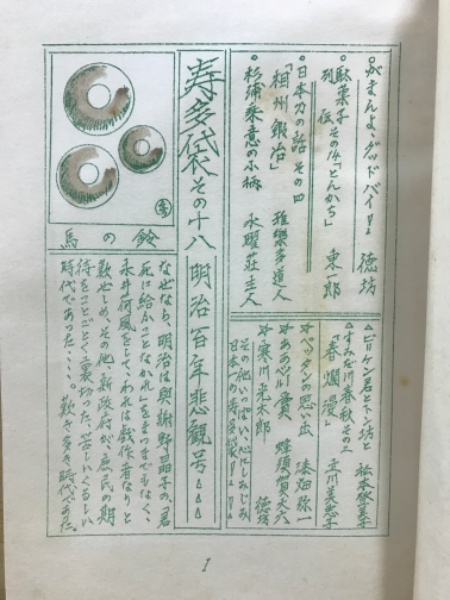 がまんよ、グッドバイ!! 徳坊
駄菓子列伝 その14「とんかち」 東一郎
日本刀の話 その四
「相州鍛冶」 雅樂多道人
杉浦乗意の小柄 水曜荘主人
ビリケン君とトン坊と 松本
すみだ川春秋その三
「春爛漫」 立川
ベッタンの思い出 湊畑弥一
ああベル賞 蜂須賀大六
寒川光太郎 徳坊
その記いっぱい、心にしみじみ
日本一の寿多袋!!
寿多袋 その十八
明治百年悲観号
鈴の馬
なぜなら、明治は與謝野晶子の、「君
死に給ふことなかれ」をまつまでもなく、
永井荷風をして、われは戯作者なりと
歎ぜしめ、その他、新政府が、庶民の期
待をことごとく裏切った、苦しいくるしい
時代であった・・・。歎き多き時代であった。
1